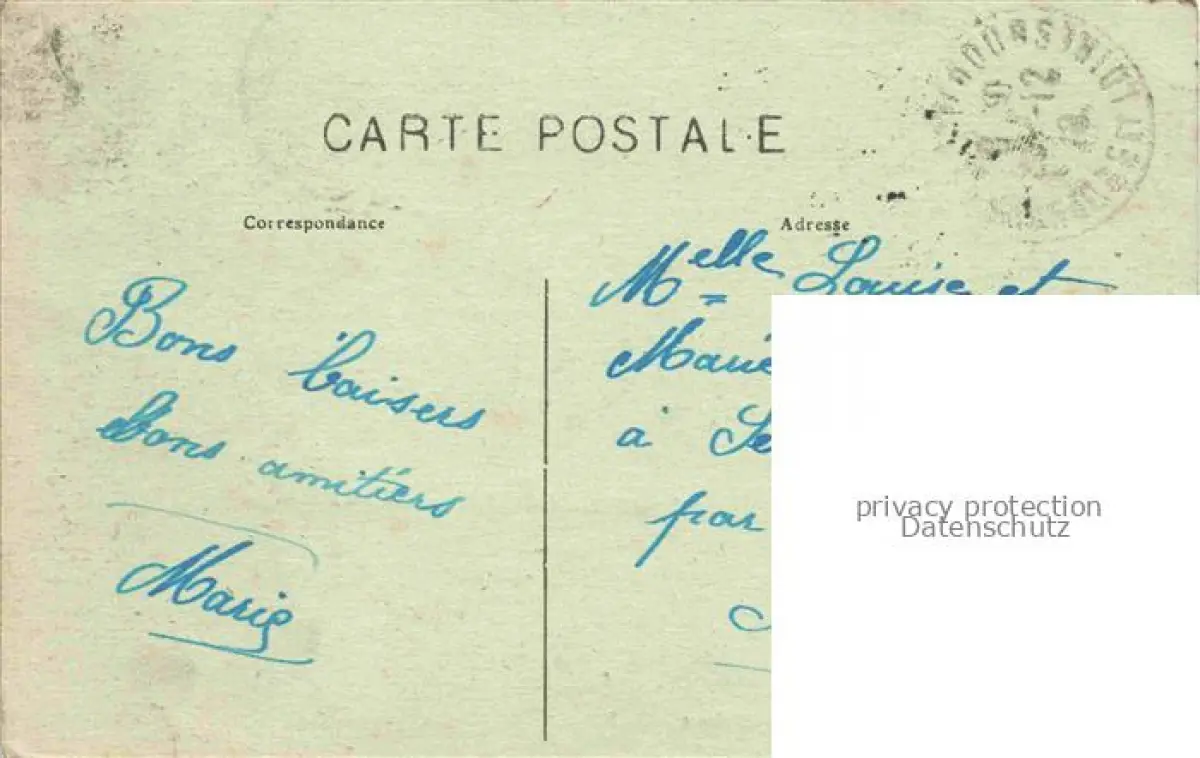 CARTE POSTALE
Correspondance
Adresse
Bons baisers
Bons amitiers
Marie
Melle Louise et
Marie
à
par
privacy protection
Datenschutz